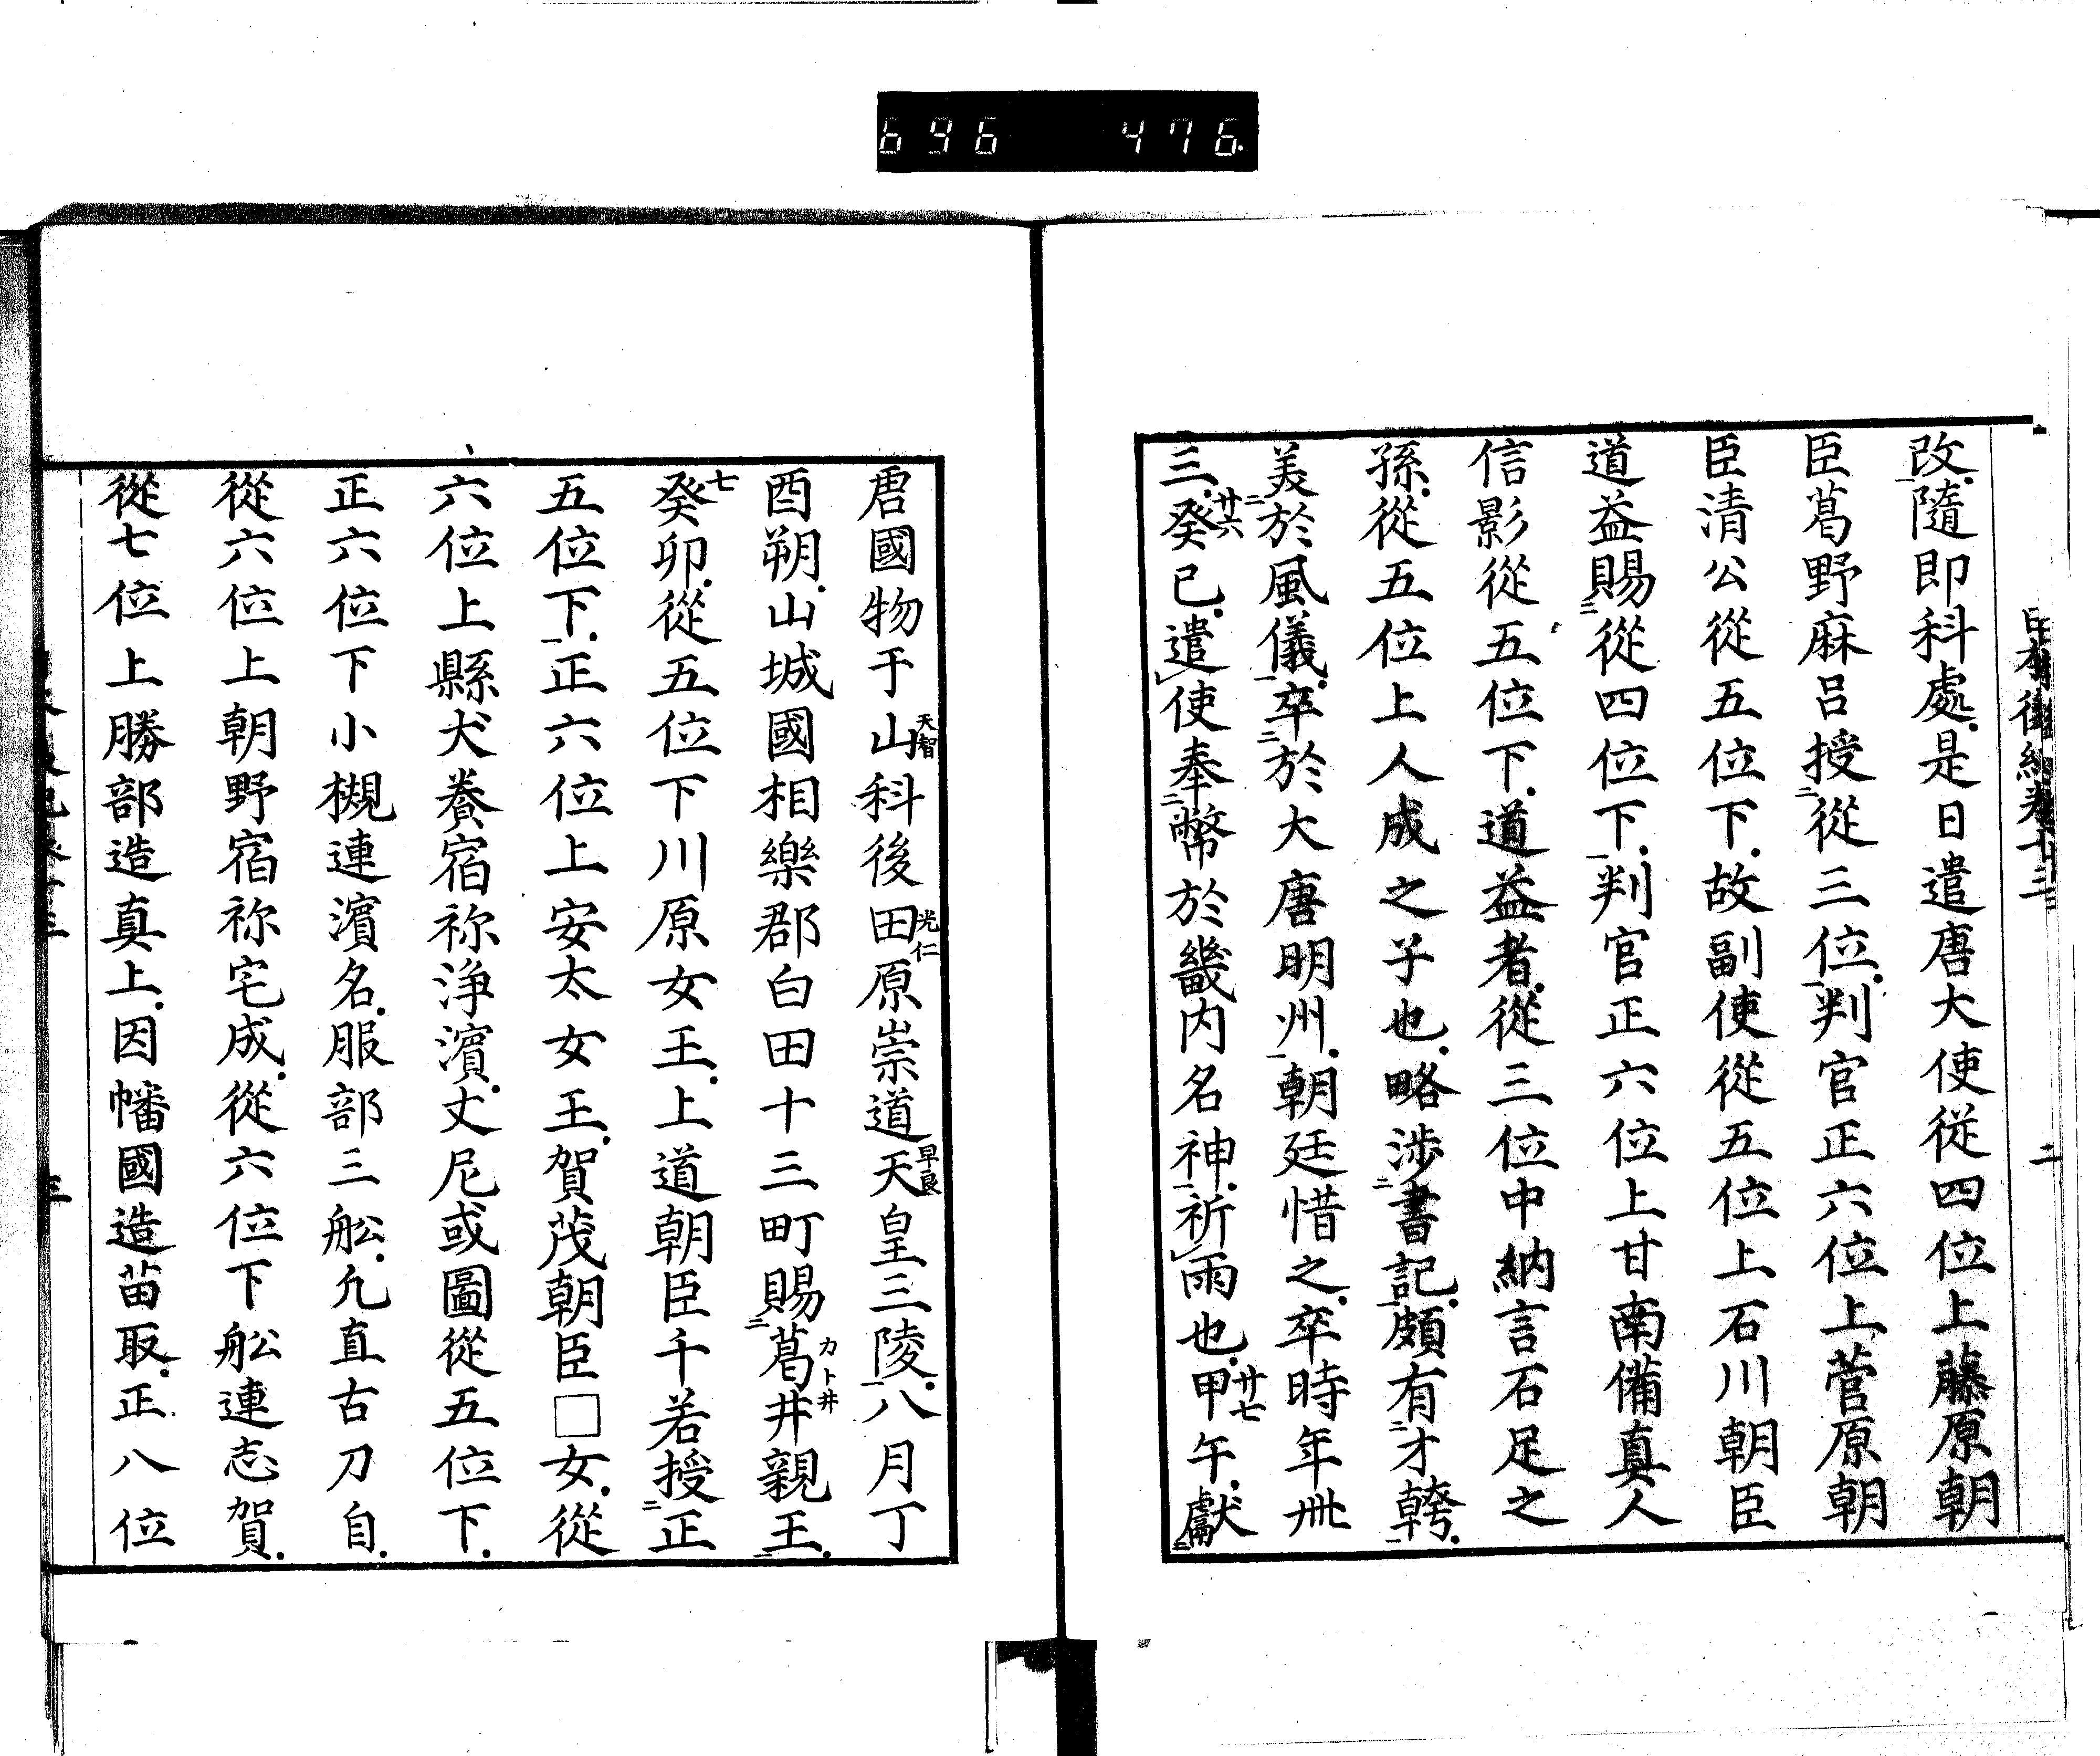 696 476
改隨即科處是日遣唐大使從四位上藤原朝
臣葛野麻呂授從三位判官正六位上菅原朝
臣清公從五位下故副使從五位上石川朝臣
道益賜從四位下判官正六位上甘南備真人
信影從五位下道益者從三位中納言石足之
孫從五位上人成之子也略涉書記頗有才幹
美於風儀卒於大唐明州朝廷惜之卒時年卌
三癸巳遣使奉幣於畿内名神祈雨也甲午獻
廿六
廿七
唐國物于山科後田原崇道天皇三陵八月丁
天智
光仁
早良
酉朔山城國相樂郡白田十三町賜葛井親王
カト井
癸卯從五位下川原女王上道朝臣千若授正
七
五位下正六位上安太女王賀茂朝臣□女從
六位上縣犬養宿祢浄濱丈尼或圖從五位下
正六位下小槻連濱名服部三舩凢直古刀自
從六位上朝野宿祢宅成從六位下舩連志賀
從七位上勝部造真上因幡國造苗取正八位